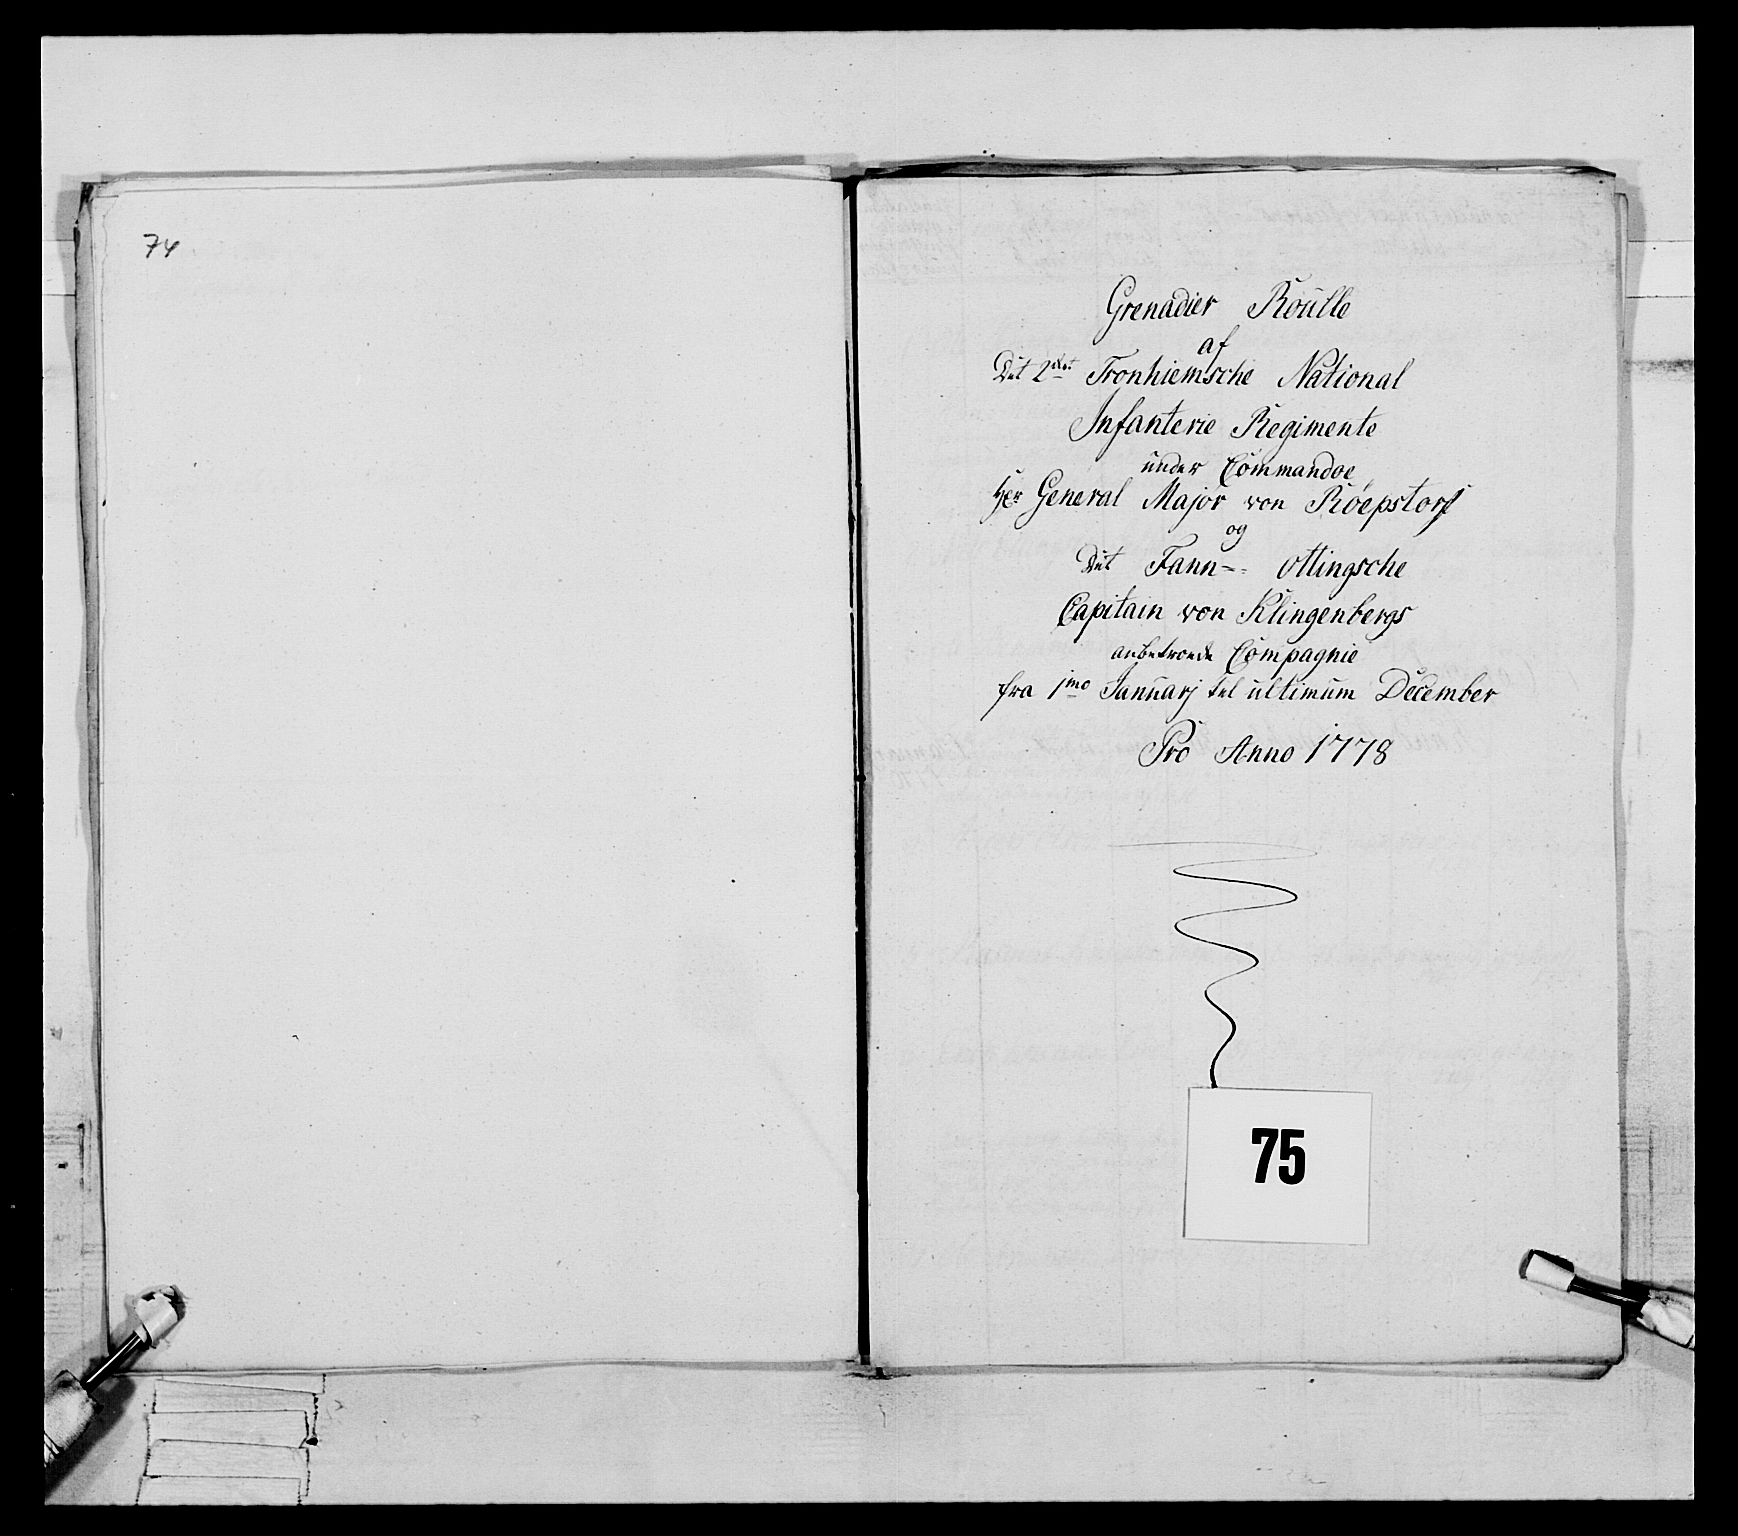 74
Grenadier Roulle
af
Det 2det Tronhiemsche National
Infanterie Regimente
under Commandoe
Her General Major von Röepstorf
og
Det Fann-- ottingsche
Capitain von Klingenbergs
anbetroede Compagnie
fra 1mo Januarj til ultimum December
Pro Anno 1778
75